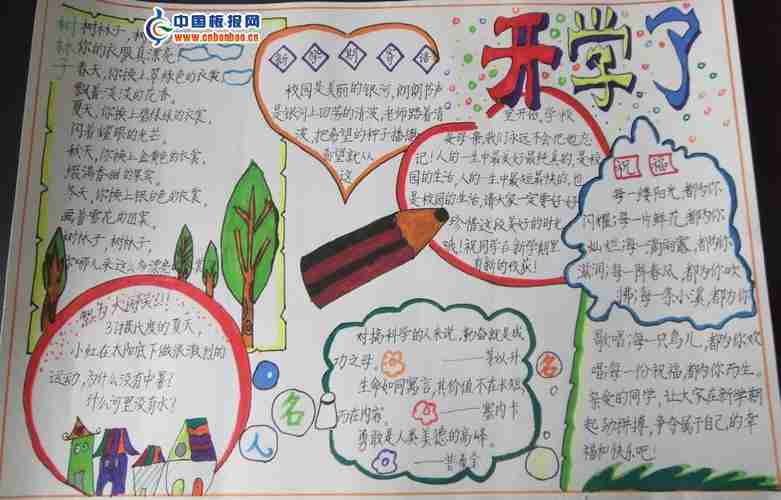 中国板报网
www.cnbanbao.cn
开学了
树林子
树林子,树
你的衣服真漂亮
春天,你换上翠绿色的衣裳
飘着淡淡的花香。
夏天,你换上碧绿的衣裳,
闪着耀眼的光芒。
秋天,你换上金黄色的衣裳,
缀满香甜的果实。
冬天,你换上银白色的衣裳
画着雪花的图案。
树林子,树林子,
新学期寄语
校园是美丽的银河,朗朗书声
是银河上回荡的清波,老师踏着清
波,把希望的种子播撒
希望就从
这
里开始,学校
是母亲,我们永远不会把她忘
记!人的一生中最美好最纯真的,是校
园的生活,人的一生中最短最快的,也
是校园的生活,请大家一定要好好
珍惜这段美好的时光
哦!祝同学在新学期里
有新的收获!
祝福
每一缕阳光,都为你
闪耀;每一片鲜花,都为你
灿烂;每一滴雨露,都为你
滋润;每一阵春风,都为你吹
拂;每一条小溪,都为你
歌唱;每一只鸟儿,都为你欢
唱;每一份祝福,都为你而生。
亲爱的同学,让大家在新学期
起劲拼搏,争夺属于自己的幸
福和快乐吧!
3摄氏度的夏天,
小红在太阳底下做很激烈的
运动,为什么没有中暑?
什么河里没有水?
名人名言
对搞科学的人来说,勤奋就是成
功之母。
——茅以升
生命如同寓言,其价值不在长短,
而在内容。
——塞内卡
勇敢是人类美德的高峰。